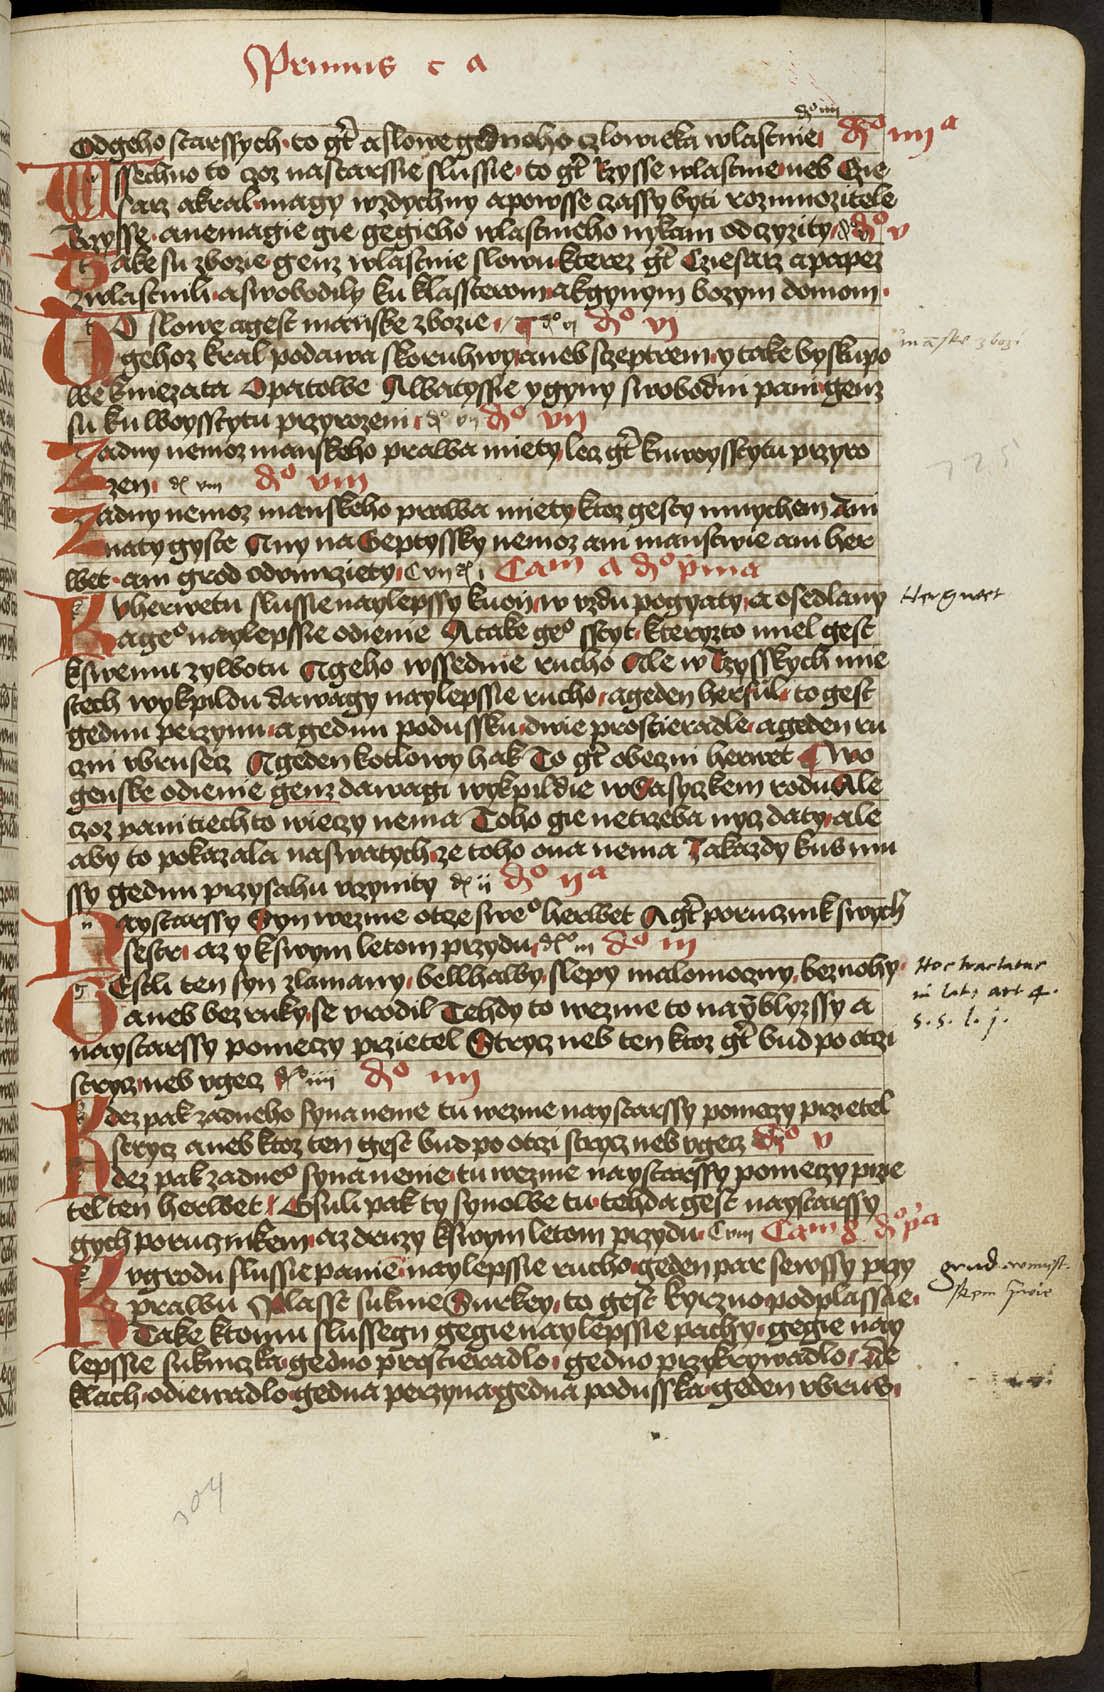 Primus c a
Odgeho starssych · to gt̃ a slowe gednoho czlowieka wlastnie dꝰ iiii a
Wssechno to czoz nastarssie slussie · to gt̃ Rzysse wlastnie neb Czie
sarz a kral magy wzdychny apowsse czassy byti rozmnozitele
Rzysse · anemagie gie gegieho wlastnieho nykam odczyzity dꝰ v
Take su zbozie genz wlastnie slowu kterez gt̃ Cziesarz a papez
zwlastnili · a swobodily ku klassterom akgynym bozym domom ·
To slowe a gest manske zbozie · dꝰ vi dꝰ vi
gehoz kral podawa skoruhwy aneb sczeptrem y take byskupo
we kniezata Opatowe Abatyssie y gyny swobodni pani genz
su ku woysstytu przyrozeni dꝰ vii dꝰ vii
Zadny nemoz manskeho prawa miety lecz gt̃ kuwoysstytu przyro
zen dꝰ viii dꝰ viii
Zadny nemoz manskeho prawa miety ktoz gesty mnychem Ani
znaty gyste Any na Geptyssky nemoz ani manstwie ani her
wet · ani grod odumrziety C vii dꝰ i Cam a dꝰ pma
Kuherwetu slussie naylepssy kuon w uzdu pogyaty a osedlany
a geº naylepssie odienie A take geº sstyt · kteryzto miel gest
kswemu zywotu A geho wssednie rucho Ale w Rzysskych mie
stech wykpildu dawagy naylepssie rucho · a geden hersul · to gest
gednu perzynu · a gednu podussku · dwie prostieradle · a geden ru
czni ubrusecz A geden kotlowy hak To gt̃ obeczni herwet Two
genske odienie genz dawagi wykpildie w Sasyczkem rodu Ale
czoz pani tiechto wieczy nema Toho gie netrzeba nycz daty · ale
aby to pokazala naswatych ze toho ona nema Zakazdy kus mu
ssy gednu przysahu uczynity dꝰ ii dꝰ ii a
Naystarssy Syn wezme otcze sweº herwet A gt̃ porucznik swych
sestr · az y kswym letom przydu dꝰ iii dꝰ iii
Gestli ten syn zlamany · bellhalby · slepy malomoczny · beznohy ·
aneb bez ruky · se urodil Tehdy to wezme to nayblyzssy a
naystarssy pomeczy przietel Strycz neb ten ktoz gt̃ bud po otczi
strycz · neb ugecz dꝰ iiii dꝰ iiii
Kdez pak zadneho syna nenie tu wezme naystarssy pomeczy przietel
strycz aneb ktoz ten gest bud po otczi strycz neb ugecz dꝰ v
Kdez pak zadneº syna nenie · tu wezme naystarssy pomeczy przie
tel ten herwet Gsuli pak ty synowe tu · tehda gest naystarssy
gych porucznikem · az druzy kswym letom przydu · C viii Cam 8 dꝰ pa
Kugrodu slussie panie naylepssie rucho · geden par sewssy przy
prawu Plasst suknie Surkey · to gest kyrzno podplasstie ·
Take ktomu slussegu gegie naylepssie pachy · gegie nay
lepssie suknczka · gedno prostieradlo · gedno przykrywadlo · we
klach · odiewadlo · gedna perzyna · gedna podusska · geden ubrus ·
manske zbozi
725
Hergwet
Hoc tractatur
in lat. art 4.
5. 5. l. j.
304